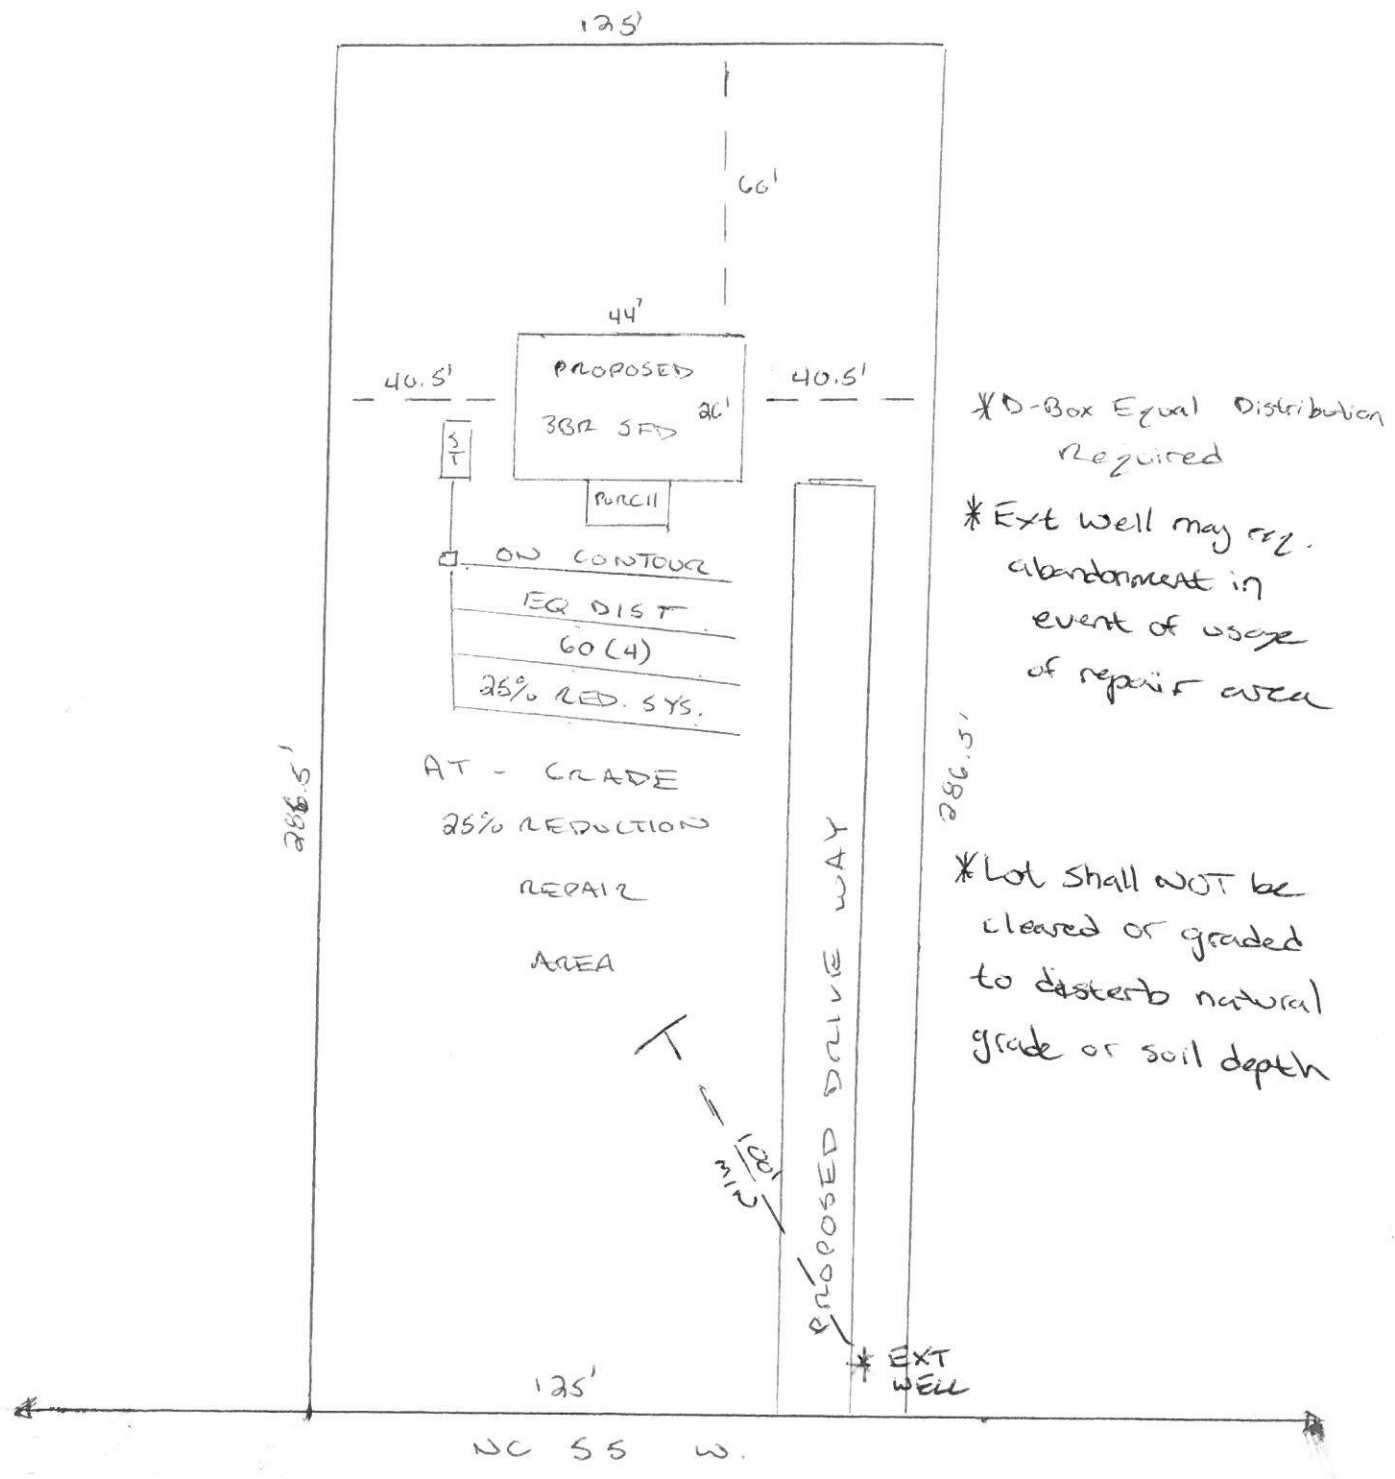 125'
66'
44'
40.5'
PROPOSED
26'
3BR SFD
40.5'
ST
PORCH
ON CONTOUR
EQ DIST
60 (4)
25% RED. SYS.
AT - GRADE
25% REDUCTION
REPAIR
AREA
286.5'
286.5'
PROPOSED DRIVE WAY
100'
MIN
* EXT
WELL
125'
NC 55 W.
* D-Box Equal Distribution
Required
* Ext well may req.
abandonment in
event of usage
of repair area
* Lot shall NOT be
cleared or graded
to disterb natural
grade or soil depth